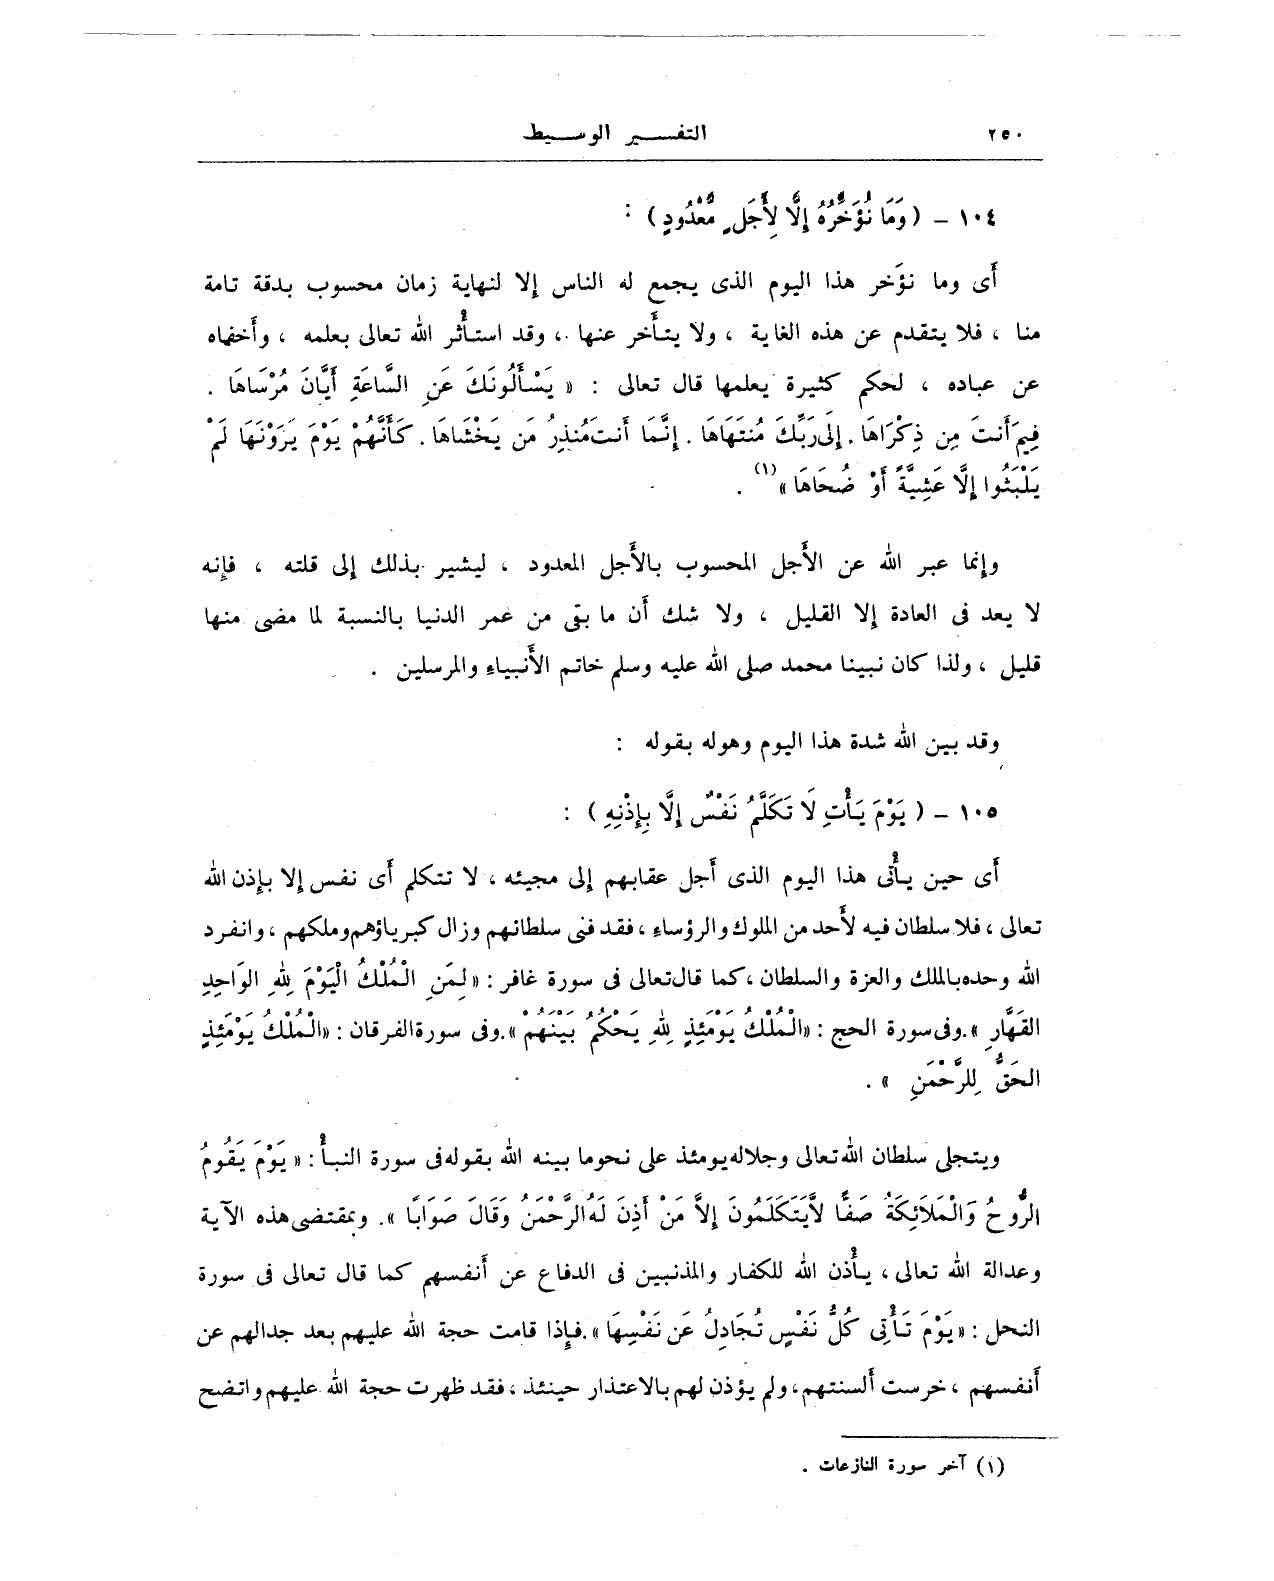 ٢٥٠ التفسير الوسيط
١٠٤ - ( وَمَا نُؤَخِّرُهُ إِلَّا لِأَجَلٍ مَّعْدُودٍ ) :
أَى وما نؤَخر هذا اليوم الذى يجمع له الناس إلا لنهاية زمان محسوب بدقة تامة
منا ، فلا يتقدم عن هذه الغاية ، ولا يتأَخر عنها ، وقد استأْثر الله تعالى بعلمه ، وأَخفاه
عن عباده ، لحكم كثيرة يعلمها قال تعالى : « يَسْأَلُونَكَ عَنِ السَّاعَةِ أَيَّانَ مُرْسَاهَا .
فِيمَ أَنتَ مِن ذِكْرَاهَا . إِلَى رَبِّكَ مُنتَهَاهَا . إِنَّمَا أَنتَ مُنذِرُ مَن يَخْشَاهَا . كَأَنَّهُمْ يَوْمَ يَرَوْنَهَا لَمْ
يَلْبَثُوا إِلَّا عَشِيَّةً أَوْ ضُحَاهَا »(١) .
وإنما عبر الله عن الأَجل المحسوب بالأَجل المعدود ، ليشير بذلك إلى قلته ، فإنه
لا يعد فى العادة إلا القليل ، ولا شك أن ما بقى من عمر الدنيا بالنسبة لما مضى منها
قليل ، ولذا كان نبينا محمد صلى الله عليه وسلم خاتم الأَنبياء والمرسلين .
وقد بين الله شدة هذا اليوم وهوله بقوله :
١٠٥ - ( يَوْمَ يَأْتِ لَا تَكَلَّمُ نَفْسٌ إِلَّا بِإِذْنِهِ ) :
أَى حين يأْتى هذا اليوم الذى أَجل عقابهم إلى مجيئه ، لا تتكلم أَى نفس إلا بإذن الله
تعالى ، فلا سلطان فيه لأَحد من الملوك والرؤساء ، فقد فنى سلطانهم وزال كبرياؤهم وملكهم ، وانفرد
الله وحده بالملك والعزة والسلطان ، كما قال تعالى فى سورة غافر : « لِمَنِ الْمُلْكُ الْيَوْمَ لِلهِ الوَاحِدِ
القَهَّارِ » . وفى سورة الحج : « الْمُلْكُ يَوْمَئِذٍ لِلهِ يَحْكُمُ بَيْنَهُمْ » . وفى سورة الفرقان : « الْمُلْكُ يَوْمَئِذٍ
الحَقُّ لِلرَّحْمَنِ » .
ويتجلى سلطان الله تعالى وجلاله يومئذ على نحو ما بينه الله بقوله فى سورة النبأْ : « يَوْمَ يَقُومُ
الرُّوحُ وَالْمَلَائِكَةُ صَفًّا لَّايَتَكَلَّمُونَ إِلاَّ مَنْ أَذِنَ لَهُ الرَّحْمَنُ وَقَالَ صَوَابًا » . وبمقتضى هذه الآية
وعدالة الله تعالى ، يأْذن الله للكفار والمذنبين فى الدفاع عن أَنفسهم كما قال تعالى فى سورة
النحل : « يَوْمَ تَأْتِى كُلُّ نَفْسٍ تُجَادِلُ عَن نَفْسِهَا » . فإذا قامت حجة الله عليهم بعد جدالهم عن
أَنفسهم ، خرست ألسنتهم ، ولم يؤذن لهم بالاعتذار حينئذ ، فقد ظهرت حجة الله عليهم واتضح
(١) آخر سورة النازعات .